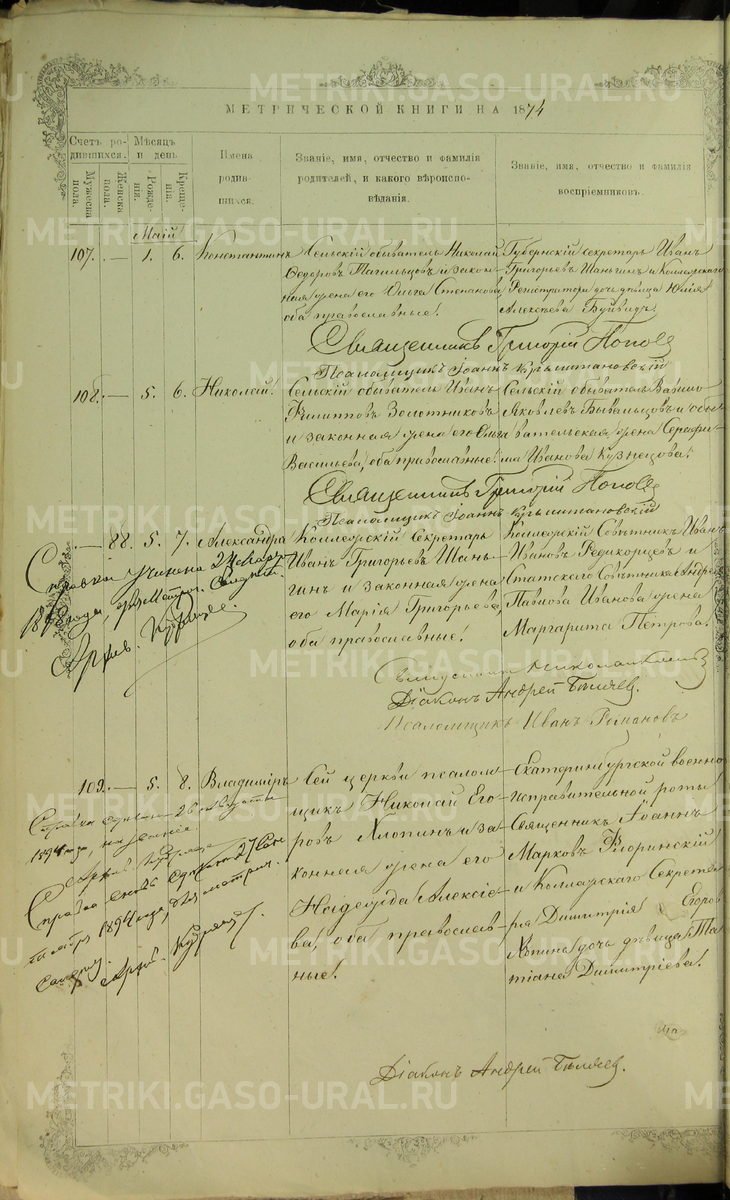 МЕТРИЧЕСКОЙ КНИГИ НА 1874
Счетъ родившихся.
Мужеска пола.
Женска пола.
Мѣсяцъ и день
Рожденія.
Крещенія.
Имена родившихся.
Званіе, имя, отчество и фамилія родителей, и какого вѣроисповѣданія.
Званіе, имя, отчество и фамилія воспріемниковъ.
Маій
107. — 1. 6. Константинъ
Сельскій обыватель Николай
Ѳедоровъ и закон-
ная жена его Ольга Степанова,
оба православные.
Губернскій секретарь Иванъ
Григорьевъ Шаньгинъ и Коллежскаго
Регистратора дочь дѣвица Юлія
Алексѣева
Священникъ Григорій Поповъ
Псаломщикъ Іоаннъ
108. — 5. 6. Николай
Сельскій обыватель Иванъ
Филипповъ Золотниковъ
и законная жена его Ольга
Васильева, оба православные.
Сельскій обыватель
Яковлевъ Бывальцовъ и обы-
вательская жена Серафи-
ма Иванова Кузнецова.
Священникъ Григорій Поповъ
Псаломщикъ Іоаннъ
— 88. 5. 7. Александра
Коллежскій Секретарь
Иванъ Григорьевъ Шань-
гинъ и законная жена
его Марія Григорьева,
оба православные.
Коллежскій Совѣтникъ Иванъ
Ивановъ Редикорцевъ и
Статскаго Совѣтника Андрея
Павлова Иванова жена
Маргарита Петрова.
Справка учинена 24 Март
1898 года,
Архив.
Священникъ Николай
Діаконъ Андрей Бѣляевъ.
Псаломщикъ Иванъ Романовъ
109. — 5. 8. Владиміръ
Сей церкви псалом-
щикъ Николай Его-
ровъ Хлопинъ и за-
конная жена его
Надежда Алексіе-
ва, оба православ-
ные.
Екатеринбургской военно-
исправительной роты
Священникъ Іоаннъ
Марковъ Флоринскій
и Коллежскаго Секрета-
ря Димитрія Егоров
Хлопина дочь дѣвица Та-
тіана Димитріева.
26 Августа
1894 года,
27 Сен
тября 1894 года,
Діаконъ Андрей Бѣляевъ.
METRIKI.GASO-URAL.RU